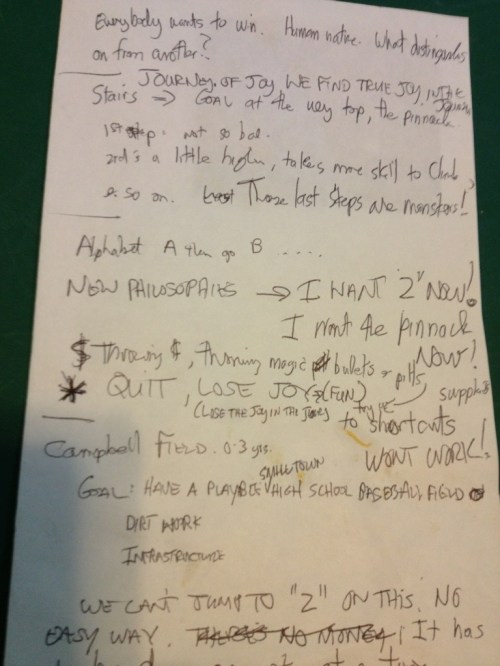 Everybody wants to win. Human nature. What distinguishes
on from another?
JOURNEY OF JOY, WE FIND TRUE JOY IN THE Journey
Stairs => GOAL at the very top, the pinnacle
1st step. not so bad.
2nd is a little higher, takes more skill to Climb
& so on. Those last Steps are monsters!
Alphabet A then go B ....
NEW PHILOSOPHIES → I WANT "Z" NOW!
I want the pinnacle NOW!
$ Throwing $, throwing magic bullets or pills
* QUIT, LOSE JOY (FUN) supplies
(LOSE THE JOY IN THE Journey) try it to shortcuts
Campbell FIELD. 0-3 yrs. WONT WORK!
GOAL: HAVE A PLAYABLE SMALL TOWN HIGH SCHOOL BASEBALL FIELD
DIRT WORK
INFRASTRUCTURE
WE CAN'T JUMP TO "Z" ON THIS. NO
EASY WAY. THERE'S NO MONEY; It has